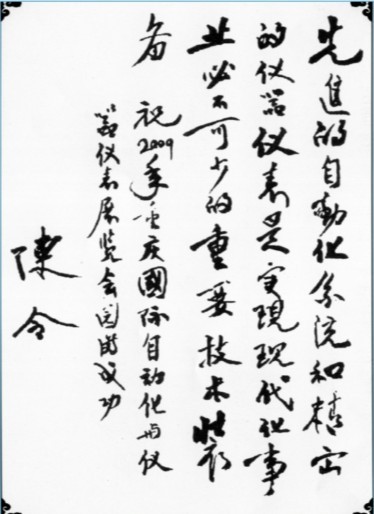 先進的自動化系统和精密
的仪器仪表是实現现代化事
业必不可少的重要技术装
备 祝2009年重庆國际自动化与仪
器仪表展览会圆满成功
陳令